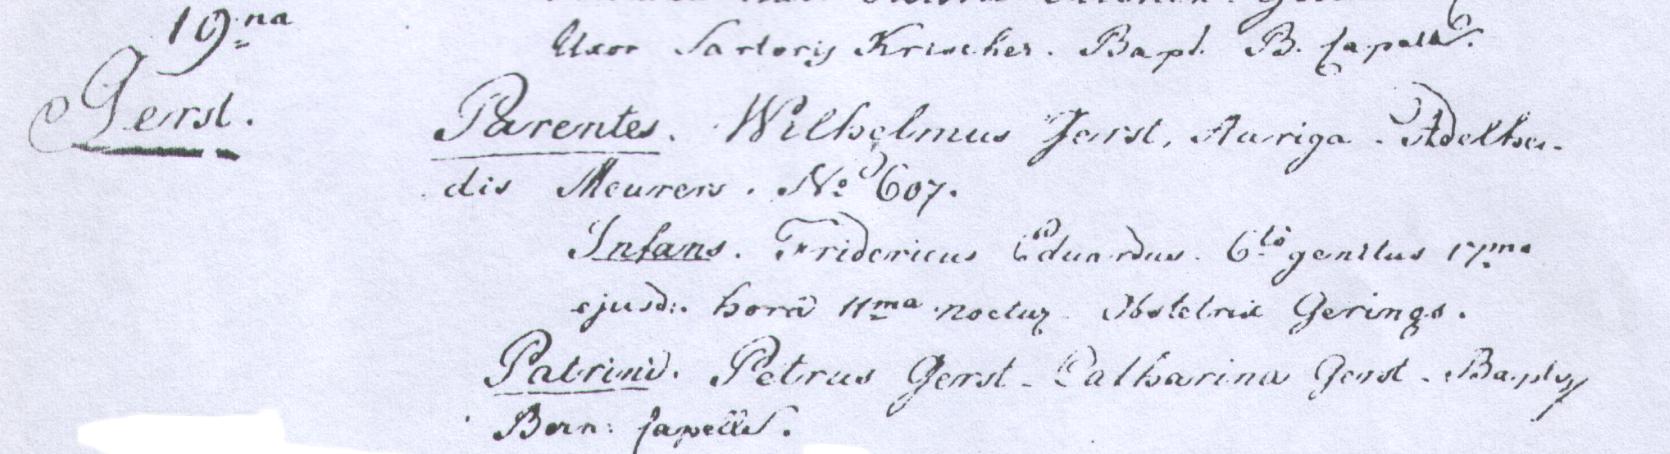 19.na
Uxor Sartoris Krischer. Bapt. B. Capell.
Gerst.
Parentes. Wilhelmus Gerst, Auriga. Adelhei-
dis Meurers. No. 607.
Infans. Fridericus Eduardus. 6to genitus 17ma
ejusd: horâ 11ma noctuz. Obstetrix Gerings.
Patrini. Petrus Gerst. Catharina Gerst.
Bern: Capelle.